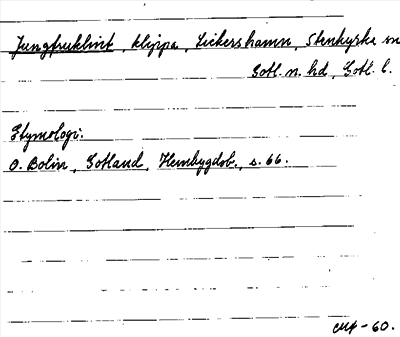 Jungfruklint, klippa, Lickershamn, Stenkyrka sn
Gotl. n. hd, Gotl. l.
Etymologi:
O. Bolin, Gotland, Hembygdsb., s. 66.
-60.